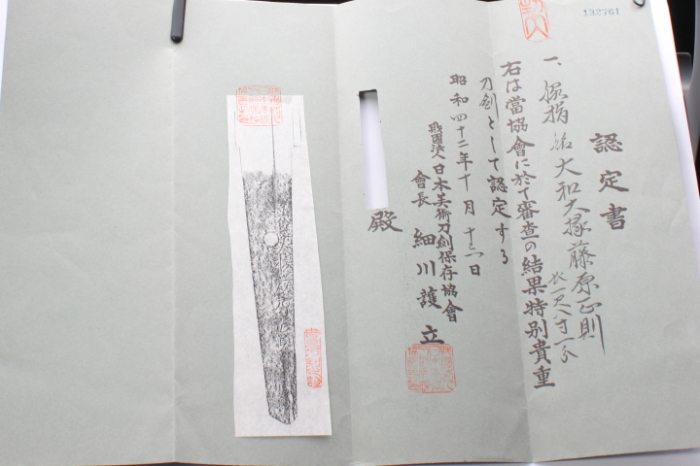 132761
認定書
一、脇指 銘 大和大掾藤原正則
長一尺八寸一分
右は當協會に於て審査の結果特別貴重
刀剣として認定する
昭和四十二年十月 日
財團法人日本美術刀剣保存協會
會長 細川護立
殿